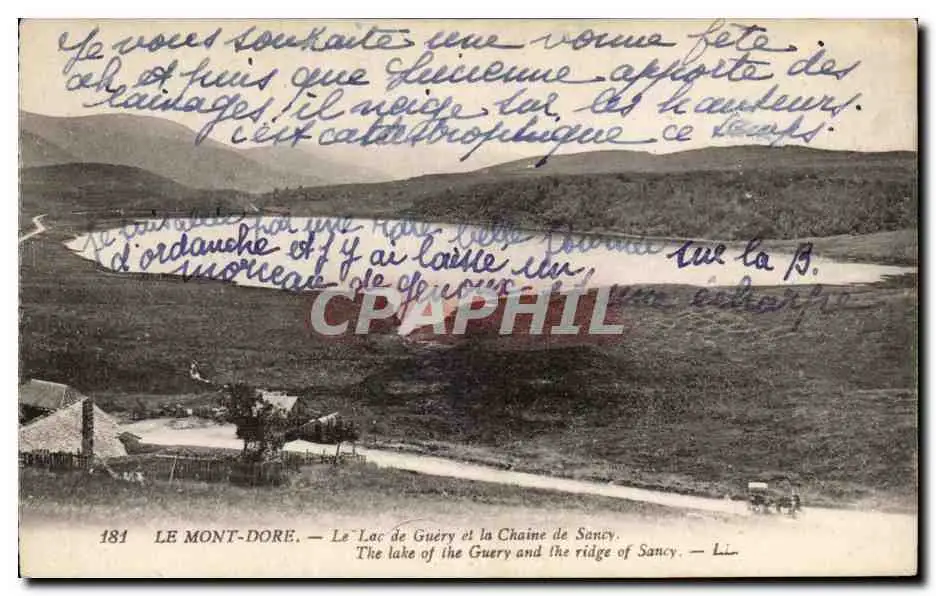 Je vous souhaite une vonne fête
ah et puis que Lucienne apporte des
lainages, il neige sur les hauteurs.
c'est catastrophique ce temps.
par une très belle tournée sur la B.
d'ordanche et j'y ai laissé un
morceau de genoux et une écharpe
CPAPHIL
181 LE MONT-DORE. — Le Lac de Guéry et la Chaine de Sancy.
The lake of the Guery and the ridge of Sancy. — LL.